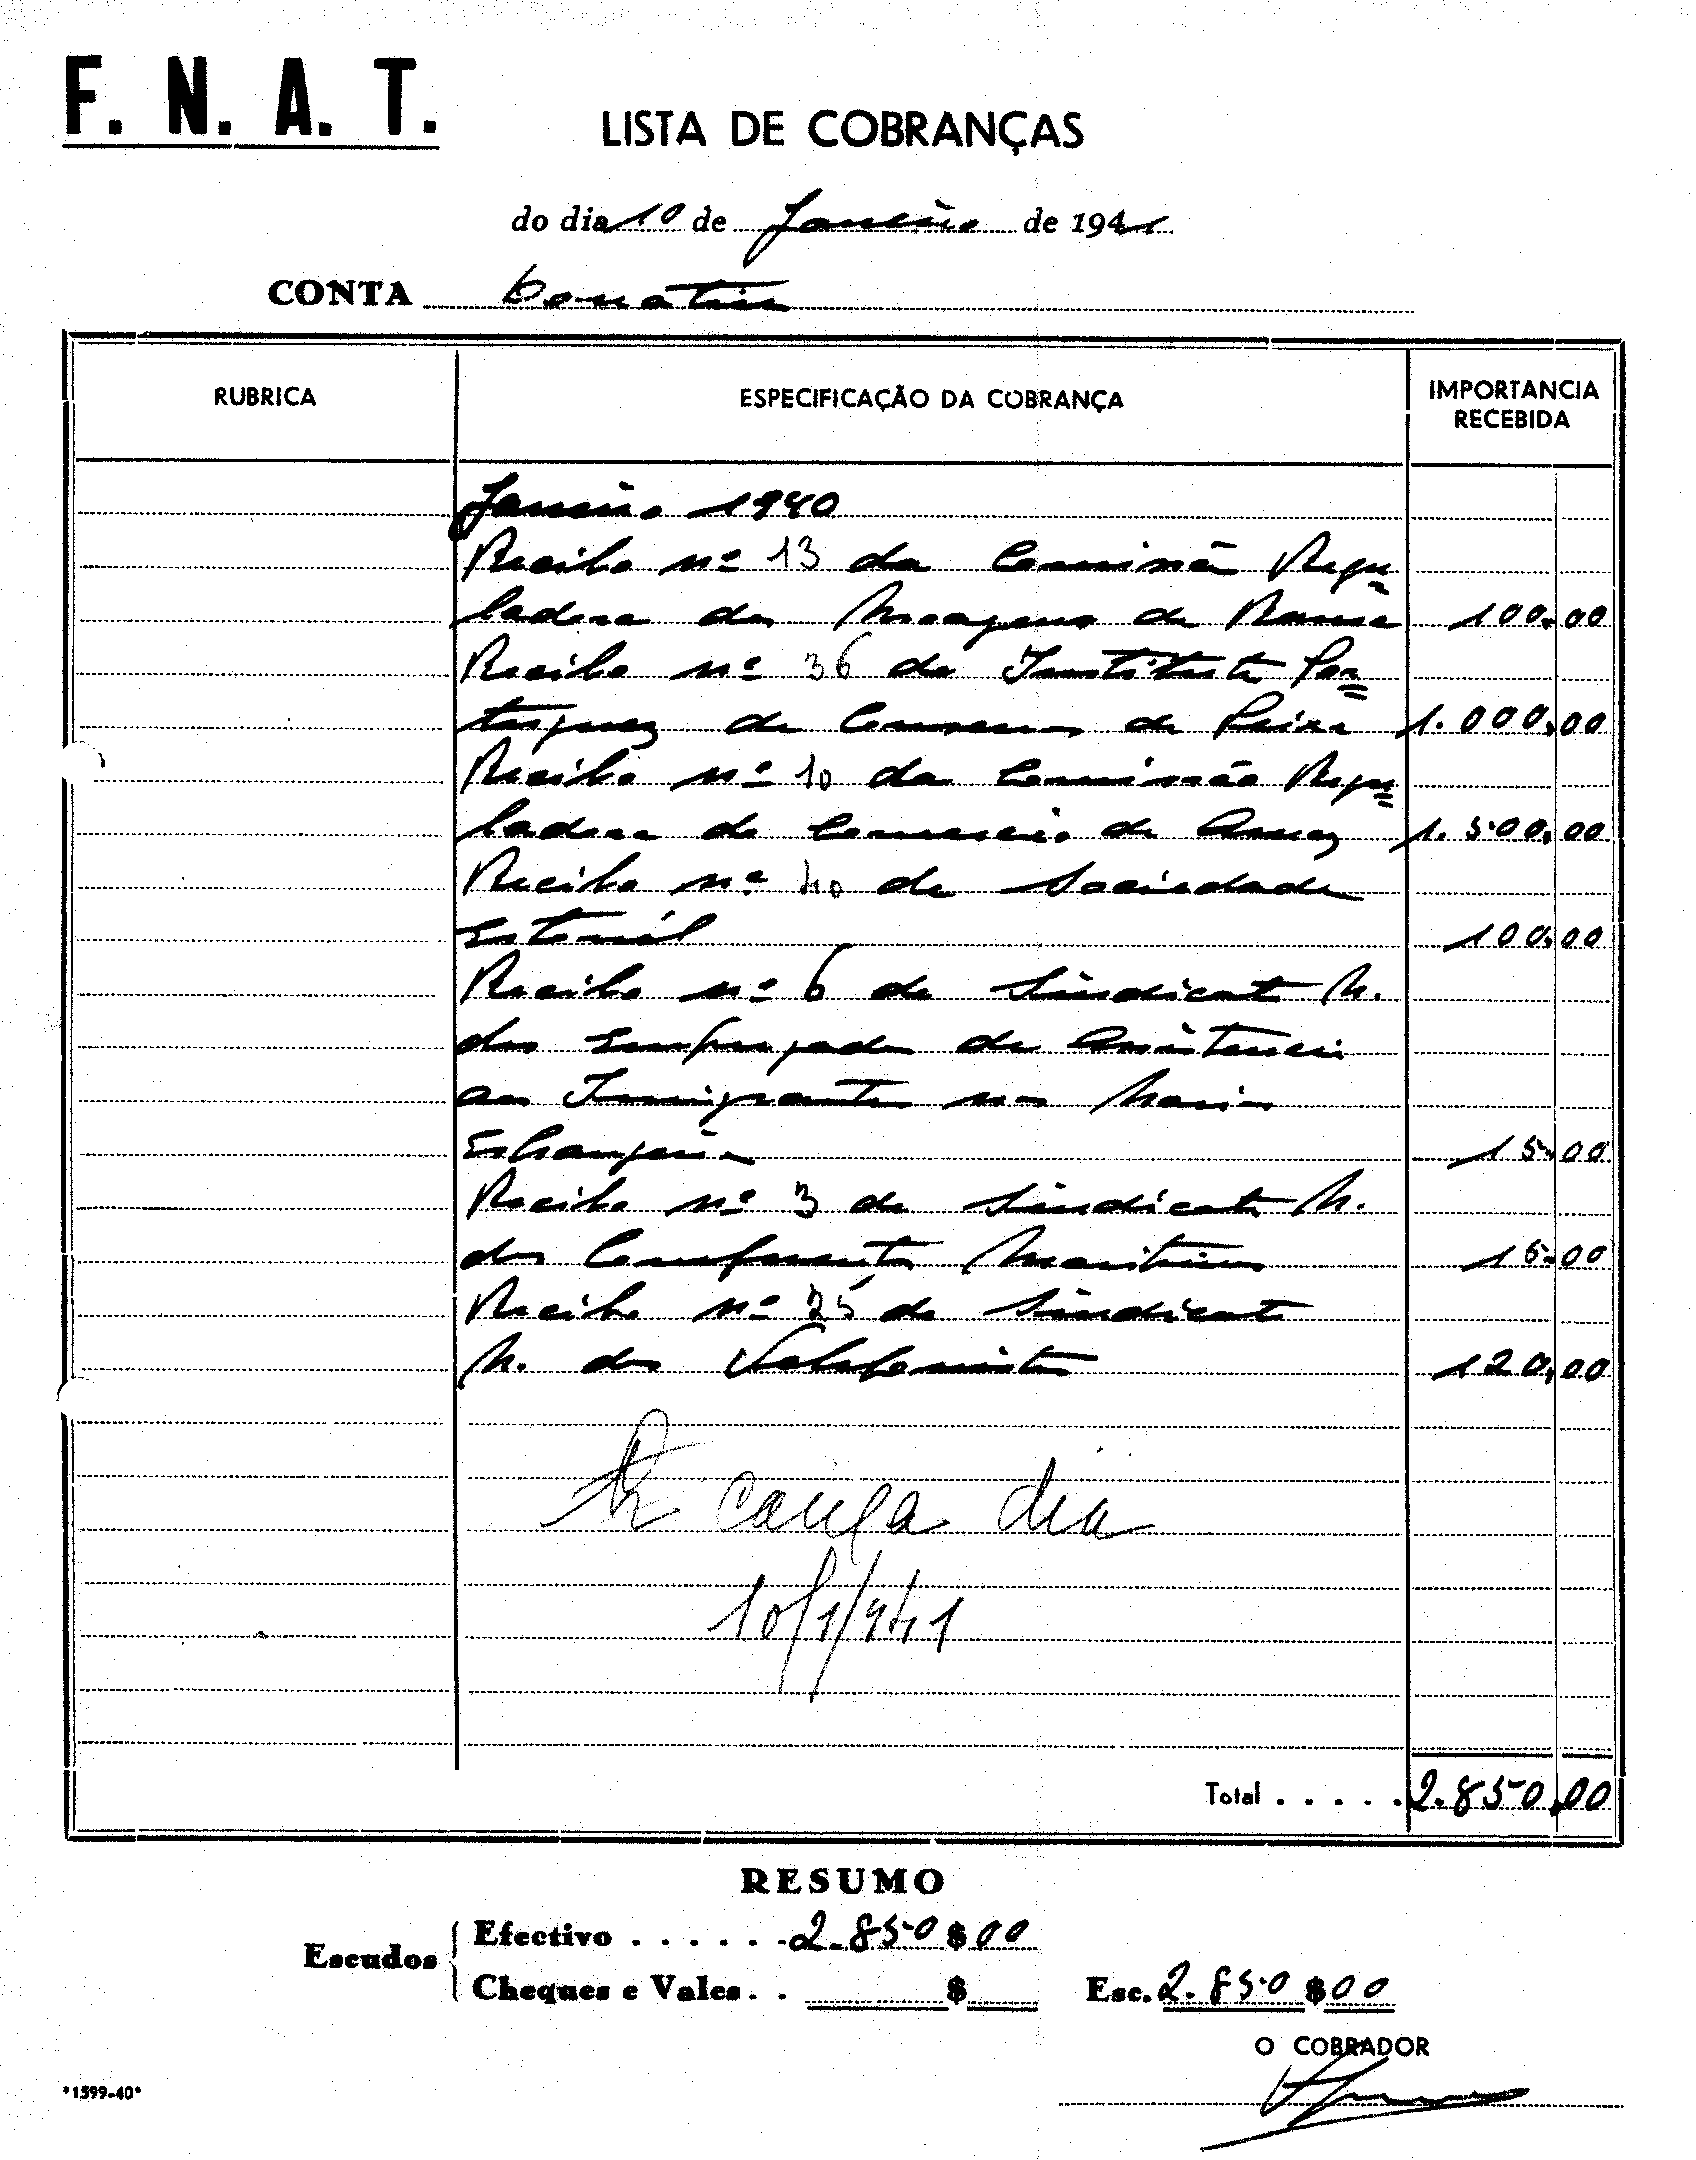 F. N. A. T.
LISTA DE COBRANÇAS
do dia 10 de Janeiro de 1941
CONTA
RUBRICA
ESPECIFICAÇÃO DA COBRANÇA
IMPORTANCIA
RECEBIDA
Janeiro 1940
Recibo nº 13 da Comissão Regu
ladora das Moagens de Rama 100.00
Recibo nº 36 do Instituto Por
tuguez de Conservas de Peixe 1.000.00
Recibo nº 10 da Comissão Regu
ladora do Comercio de Arroz 1.500.00
Recibo nº 40 da Sociedade
Estoril 100.00
Recibo nº 6 do Sindicato N.
dos Empregados de Assistencia
aos Imigrantes nos Navios
Estrangeiros 15.00
Recibo nº 3 do Sindicato N.
dos Maritimos 15.00
Recibo nº 25 do Sindicato
N. dos 120.00
caixa dia
10/1/941
Total . . . . . 2.850.00
RESUMO
Escudos
Efectivo . . . . . . 2.850$00
Cheques e Vales . . $
Esc. 2.850$00
O COBRADOR
*1399-40*